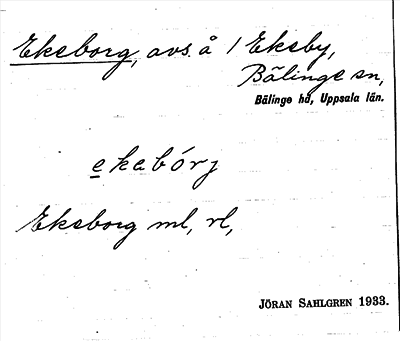 Eksborg, avs. å 1 Eksby,
Bälinge sn,
Bälinge hd, Uppsala län.
eksbórj
Eksborg ml, rl,
JÖRAN SAHLGREN 1933.